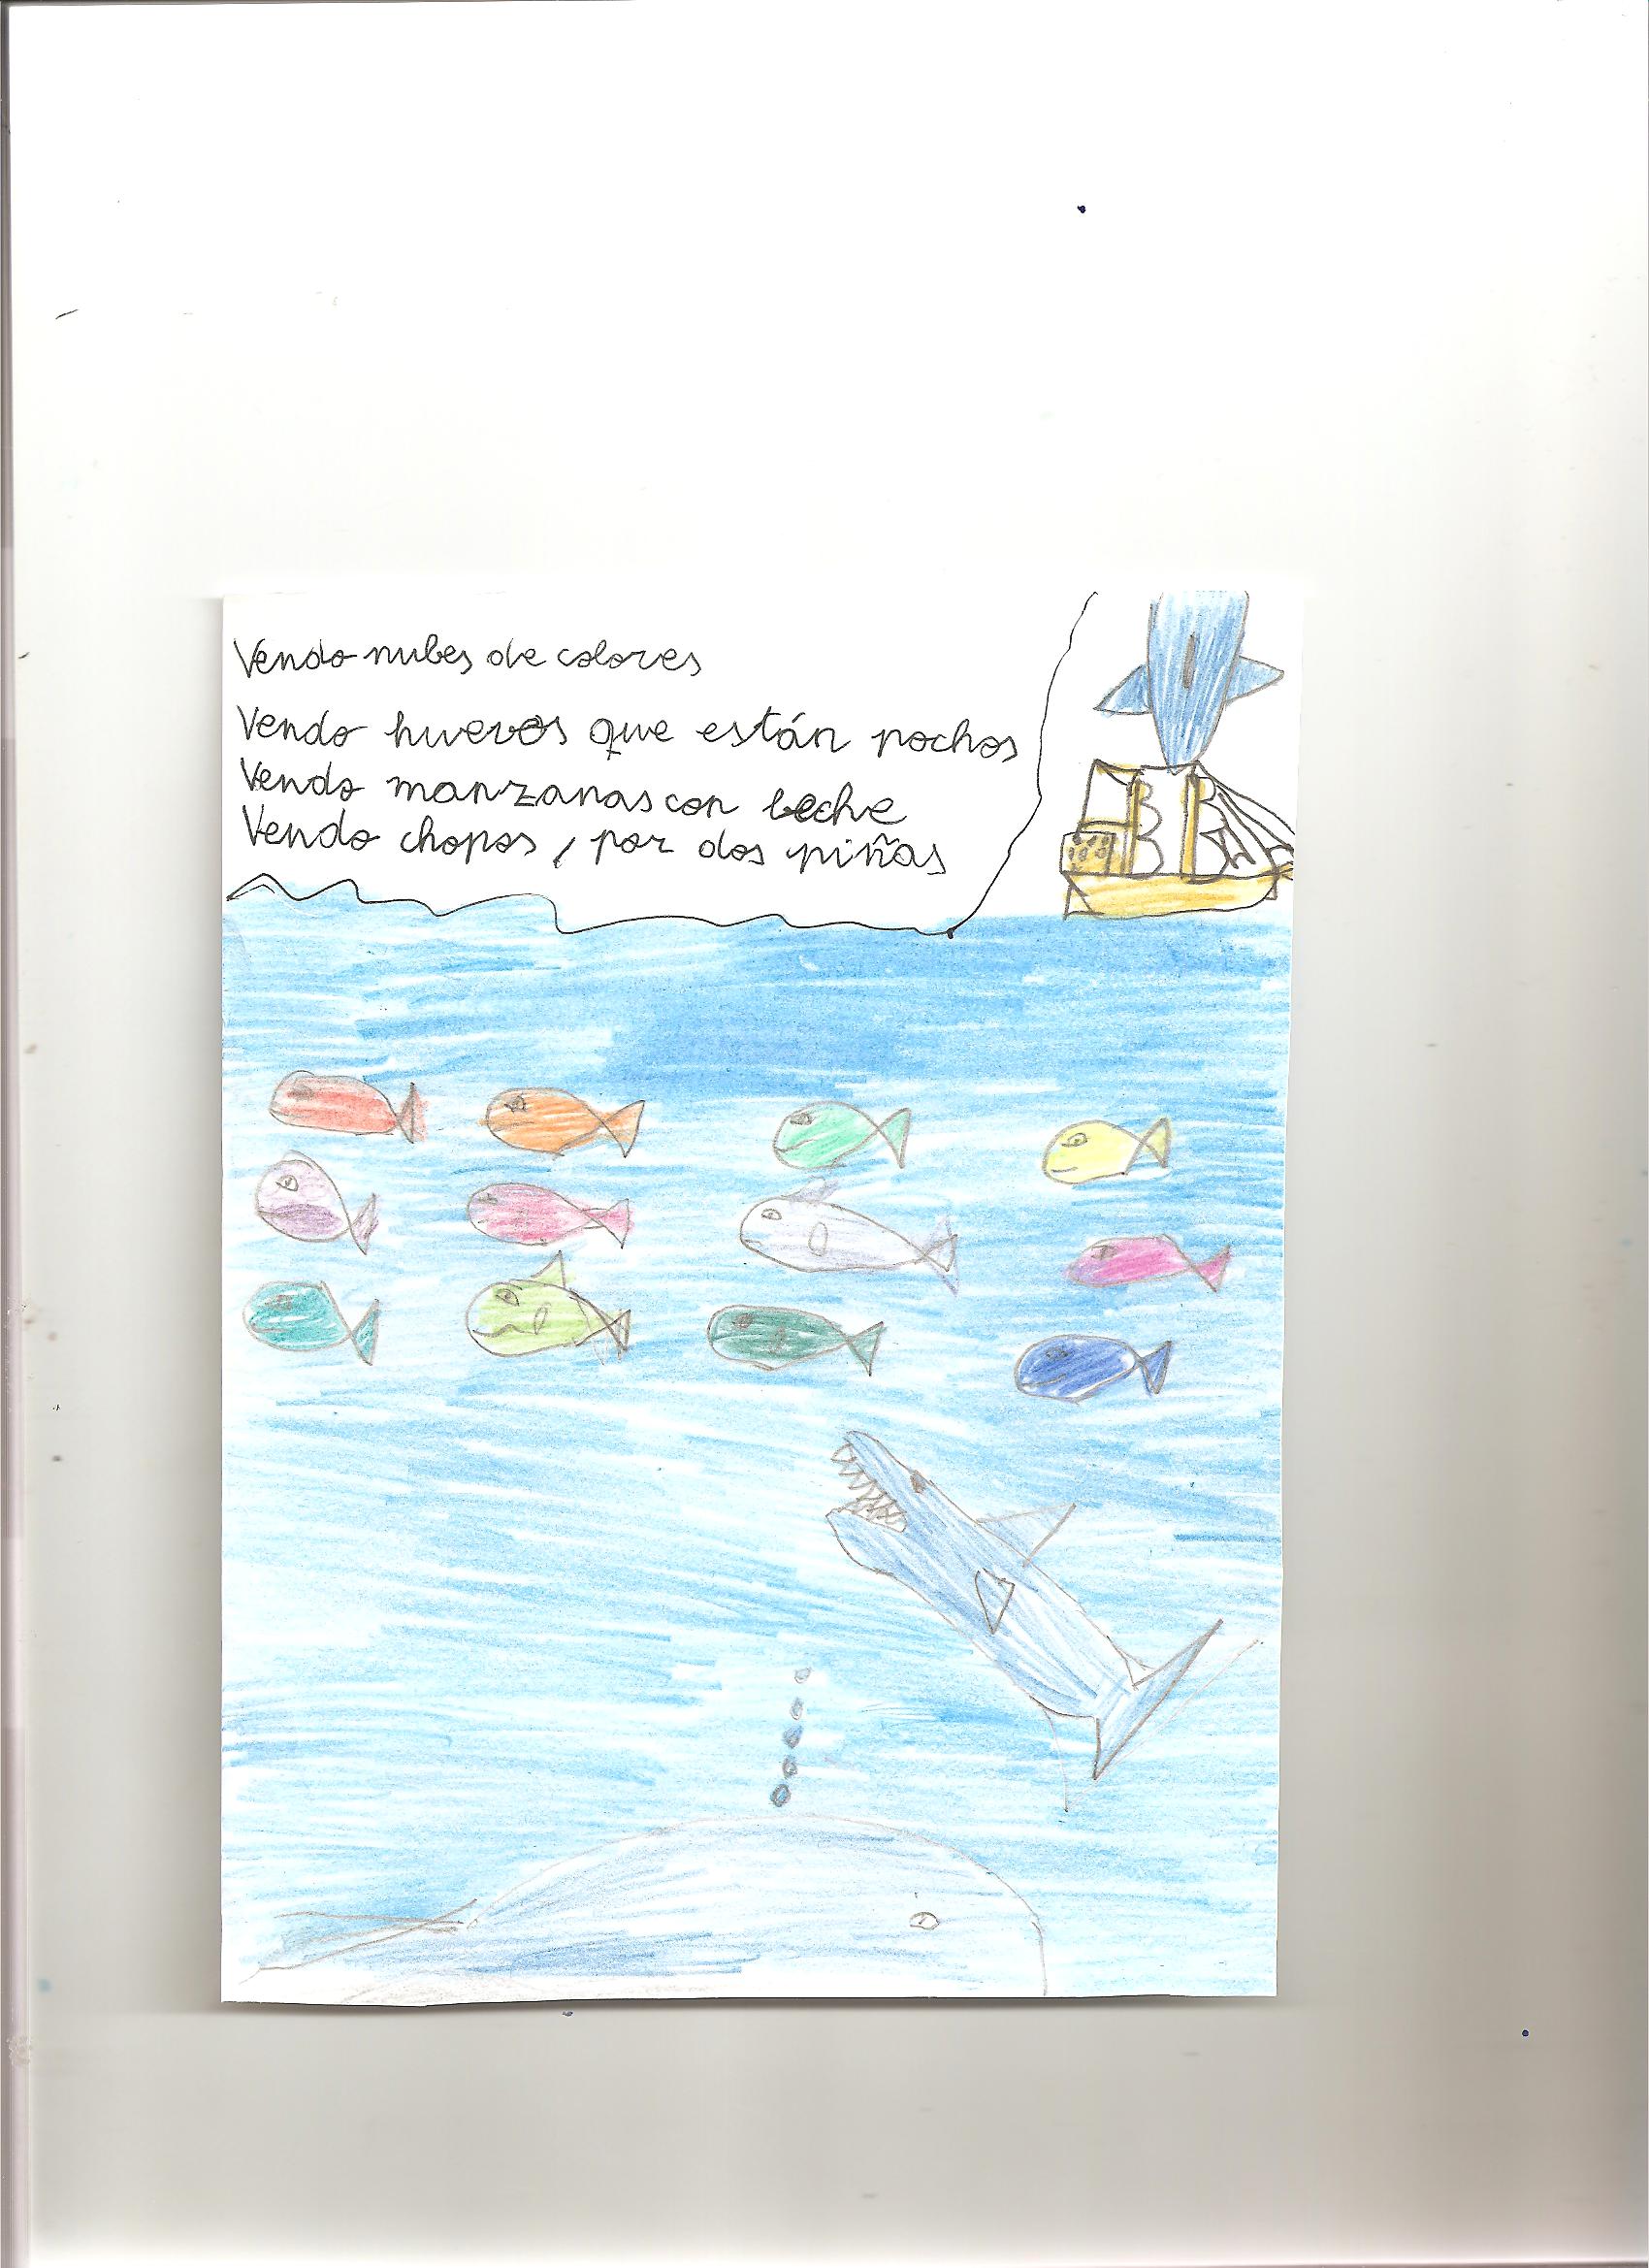 Vendo nubes de colores
Vendo huevos que están pochos
Vendo manzanas con leche
Vendo chopos, por dos piñas